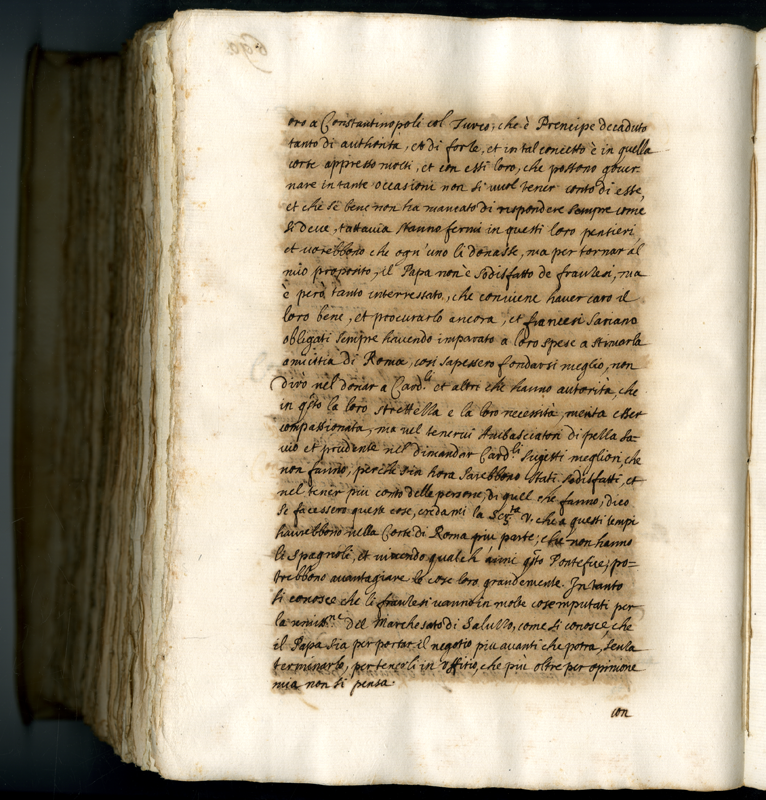 oro a Constantinopoli col Turco, che è Prencipe decaduto
tanto di authorità, et di forze, et in tal concetto è in quella
corte appresso molti, et con essi loro, che possono gouer-
nare in tante occasioni non si vuol tener conto di esse,
et che se bene non ha mancato di rispondere sempre come
si deue, tuttauia stanno fermi in questi loro pensieri
et uorebbono che ogn'uno li donasse, ma per tornar al
mio proposito, il Papa non è sodisfatto de franzesi, ma
è però tanto interressato, che conuiene hauer caro il
loro bene, et procurarlo ancora, et francesi sariano
obligati sempre hauendo imparato a loro spese a stimar la
amicitia di Roma, così sapessero fondarsi meglio, non
dirò nel donar a Card.li et altri che hanno autorità, che
in q̃sto la loro strettezza e la loro necessità, merita esser
compassionata, ma nel tenerui Ambasciatori di pezza sa-
uio et prudente nel dimandar Card.li sugetti megliori, che
non fanno, perche sin hora sarebbono stati sodisfatti, et
nel tener più conto delle persone, di quel che fanno, dico
se facessero queste cose, credami la Ser.tà V. che a questi tempi
haurebbono nella Corte di Roma più parte, che non hanno
li spagnoli, et uiuendo qualch' anni q̃sto Pontefice, po-
trebbono auantagiare le cose loro grandemente. In tanto
si conosce che li franzesi uanno in molte cose imputati per
la .ne del Marchesato di Saluzzo, come si conosce, che
il Papa sia per portar il negotio più auanti che potrà, senza
terminarlo, per tenerli in offitio, che più oltre per opinione
mia non si pensa.
con